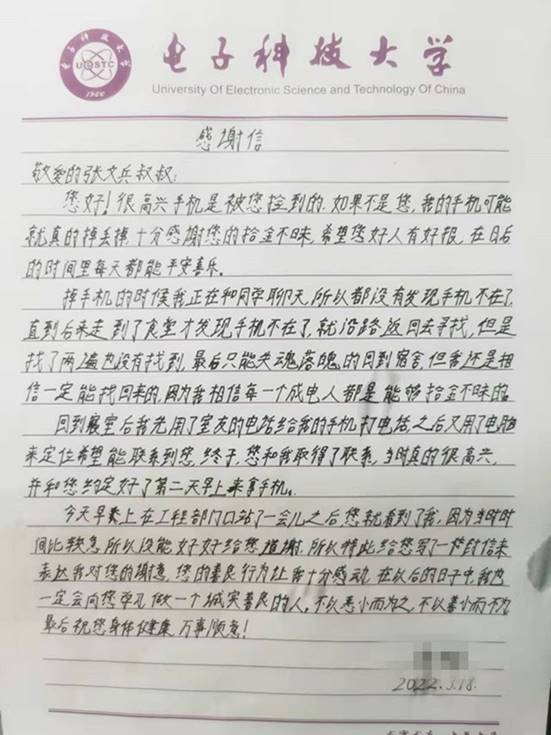 电子科技大学
University Of Electronic Science and Technology Of China
UESTC
1956
感谢信
敬爱的张文兵叔叔:
您好!很高兴手机是被您捡到的.如果不是您,我的手机可能
就真的掉丢掉,十分感谢您的拾金不昧,希望您好人有好报,在日后
的时间里每天都能平安喜乐。
掉手机的时候我正在和同学聊天,所以都没有发现手机不在了,
直到后来走到了食堂才发现手机不在了,就沿路返回去寻找,但是
找了两遍也没有找到,最后只能失魂落魄的回到宿舍,但我还是相
信一定能找回来的,因为我相信每一个成电人都是能够拾金不昧的。
回到寝室后我先用了室友的电话给我的手机打电话,之后又用了电脑
来定位希望能联系到您,终于,您和我取得了联系,当时真的很高兴,
并和您约定好了第二天早上来拿手机。
今天早晨上在工程部门口站了一会儿之后您就看到了我,因为当时时
间比较急所以没能好好给您道谢,所以特此给您写了一封信来
表达我对您的谢意,您的善良行为让我十分感动,在以后的日子中,我也
一定会向您学习,做一个诚实善良的人,不以恶小而为之,不以善小而不为
最后祝您身体健康,万事顺意!
2022.3.18.